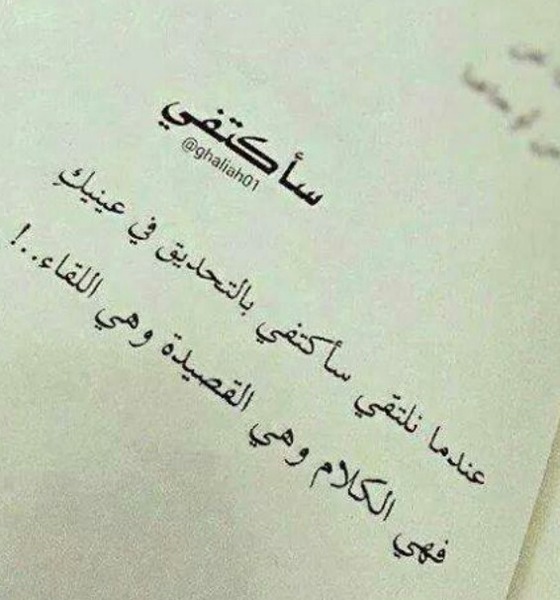 سأكتفي
@ghaliah01
عندما نلتقي سأكتفي بالتحديق في عينيكِ
فهي الكلام وهي القصيدة وهي اللقاء..!